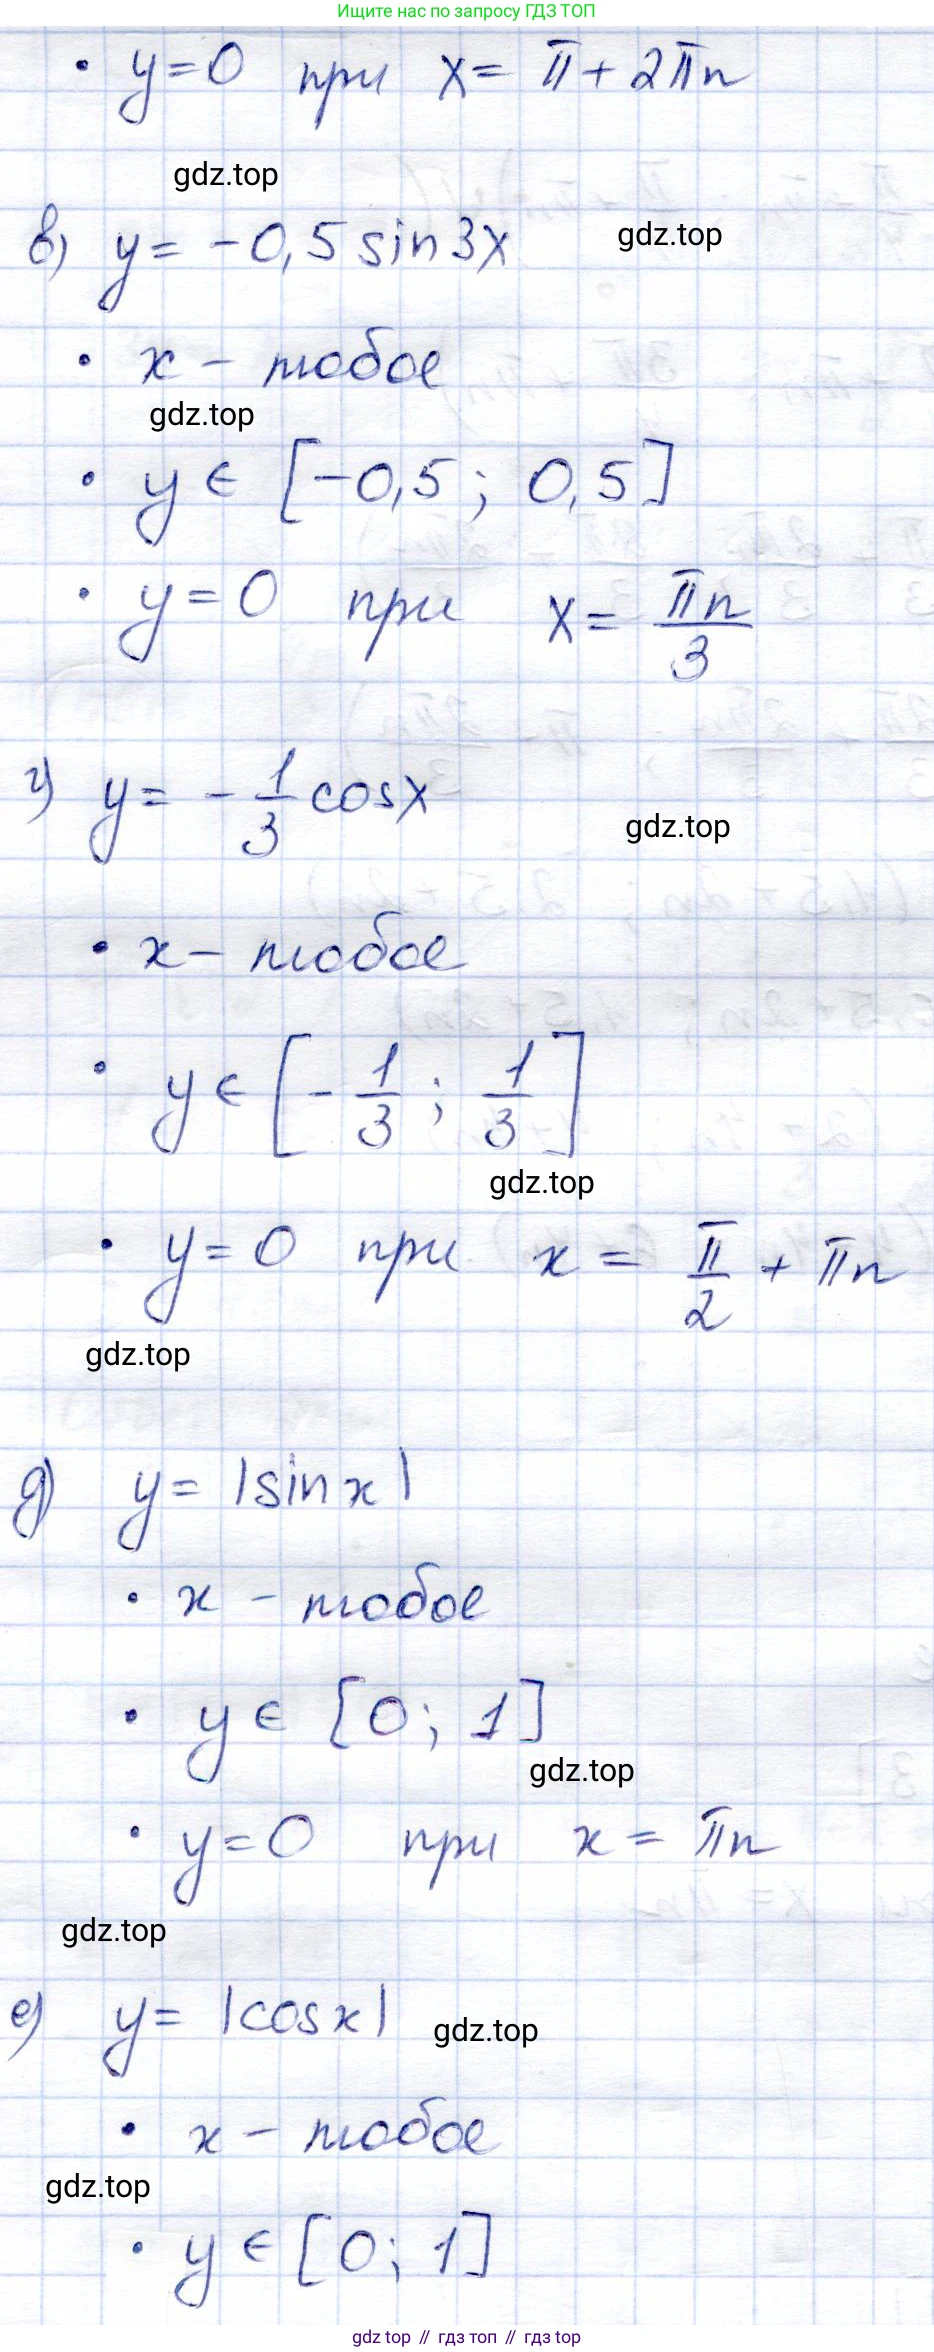 Ищите нас по запросу ГДЗ ТОП
• y=0 при x= π+2πn
gdz.top
в) y= -0,5 sin3x
gdz.top
• x - любое
gdz.top
• y ∈ [-0,5; 0,5]
• y=0 при x= πn/3
г) y= -1/3 cosx
gdz.top
• x - любое
• y ∈ [-1/3; 1/3]
gdz.top
• y=0 при x = π/2 + πn
gdz.top
д) y= |sin x|
• x - любое
• y ∈ [0; 1]
gdz.top
• y=0 при x = πn
gdz.top
е) y= |cosx|
gdz.top
• x - любое
gdz.top
• y ∈ [0; 1]
gdz top // гдз топ // гдз top